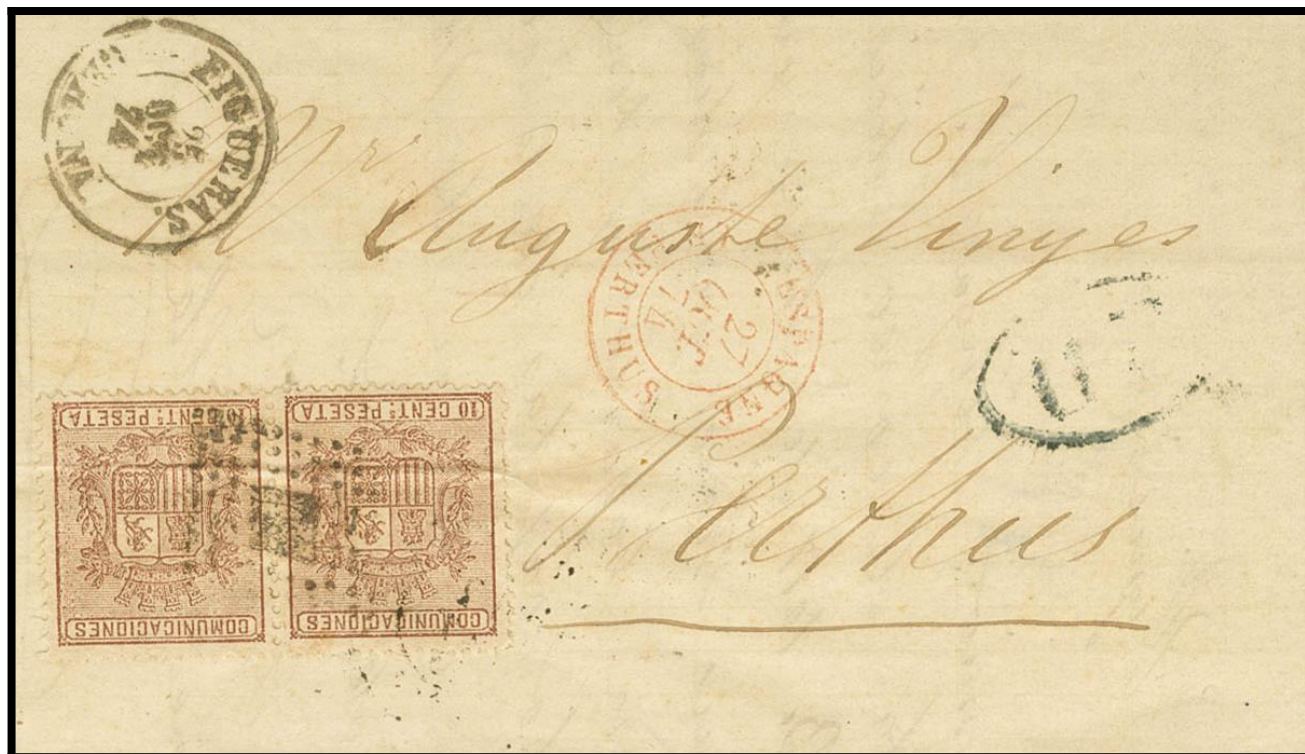 FIGUERAS.
26
OCT
74
Mr Auguste Vinyes
ESPAGNE
27
OCT.
74
PERTHUS
Perthus
10 CENT.s PESETA
COMUNICACIONES
10 CENT.s PESETA
COMUNICACIONES